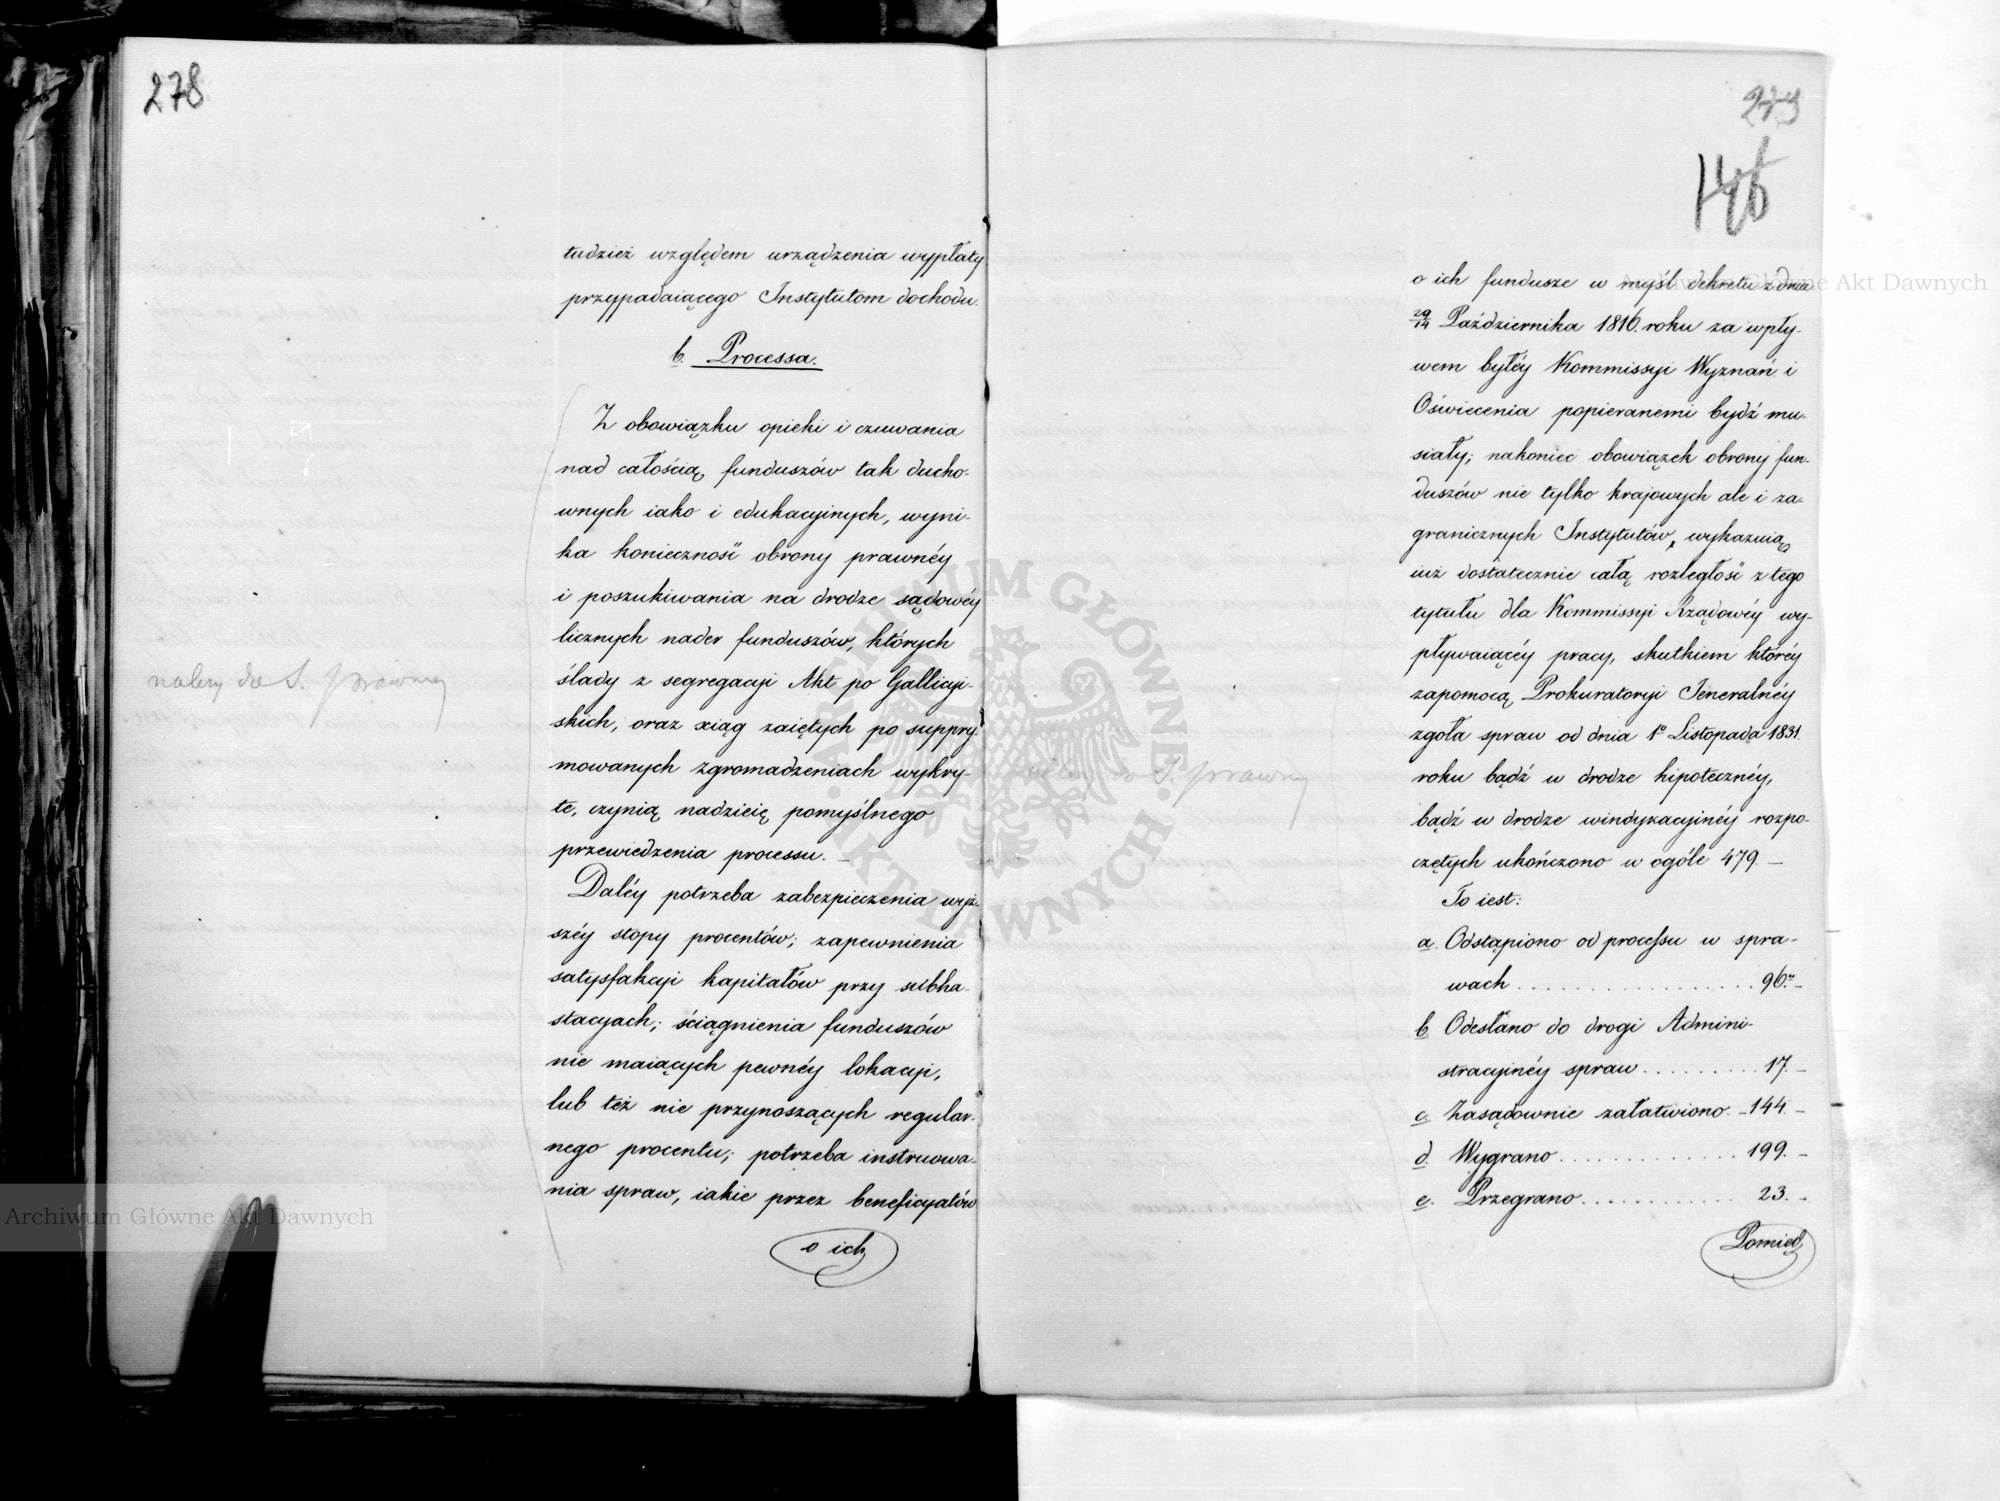 278
tudzież względem urządzenia wypłaty
przypadaiącego Instytutom dochodu.
b. Processa.
Z obowiązku opieki i czuwania
nad całością funduszów tak ducho-
wnych iako i edukacyinych, wyni-
ka konieczność obrony prawnéy
i poszukiwania na drodze sądowéy
licznych nader funduszów, których
ślady z segregacyi Akt po Gallicyi-
skich, oraz xiąg zaiętych po suppry-
mowanych zgromadzeniach wykry-
te, czynią nadzieię pomyślnego
przewiedzenia processu. –
Daléy potrzeba zabezpieczenia wyż-
széy stopy procentów; zapewnienia
satysfakcyi kapitałów przy subha-
stacyach; ściągnienia funduszów
nie maiących pewnéy lokacyi,
lub też nie przynoszących regular-
nego procentu; potrzeba instruowa-
nia spraw, iakie przez beneficyatów
o ich
należy do S. prawnej
279
146
o ich fundusze w myśl dekretu z dnia
29/14 Października 1816. roku za wpły-
wem byłéy Kommissyi Wyznań i
Oświecenia popieranemi bydź mu-
siały; nakoniec obowiązek obrony fun-
duszów nie tylko krajowych ale i za-
granicznych Instytutów, wykazuią
iuż dostatecznie całą rozległość z tego
tytułu dla Kommissyi Rządowéy wy-
pływaiącéy pracy, skutkiem któréy
zapomocą Prokuratoryi Jeneralnéy
zgoła spraw od dnia 1o Listopada 1831.
roku bądź w drodze hipotecznéy,
bądź w drodze windykacyinéy rozpo-
czętych ukończono w ogóle 479. –
To iest:
a. Odstąpiono od processu w spra-
wach . . . . . . . . . . . . . . . . . 96. –
b. Odesłano do drogi Admini-
stracyinéy spraw . . . . . . . . . . 17. –
c. Zasądownie załatwiono. – 144. –
d. Wygrano . . . . . . . . . . . . . 199. –
e. Przegrano . . . . . . . . . . . . 23. –
Pomięd
należy do S. prawnej
Archiwum Główne Akt Dawnych
Archiwum Główne Akt Dawnych
ARCHIWUM GŁÓWNE AKT DAWNYCH